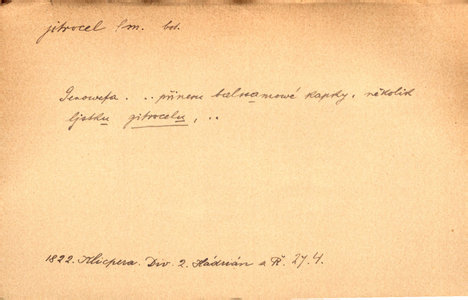 jitrocel, m. bot.
Genowefa. .. přinesu balsamowé kapky, několik
ljstku gitrocelu, ..
1822. Klicpera. Div. 2. Hadrián a Ř. 27.4.